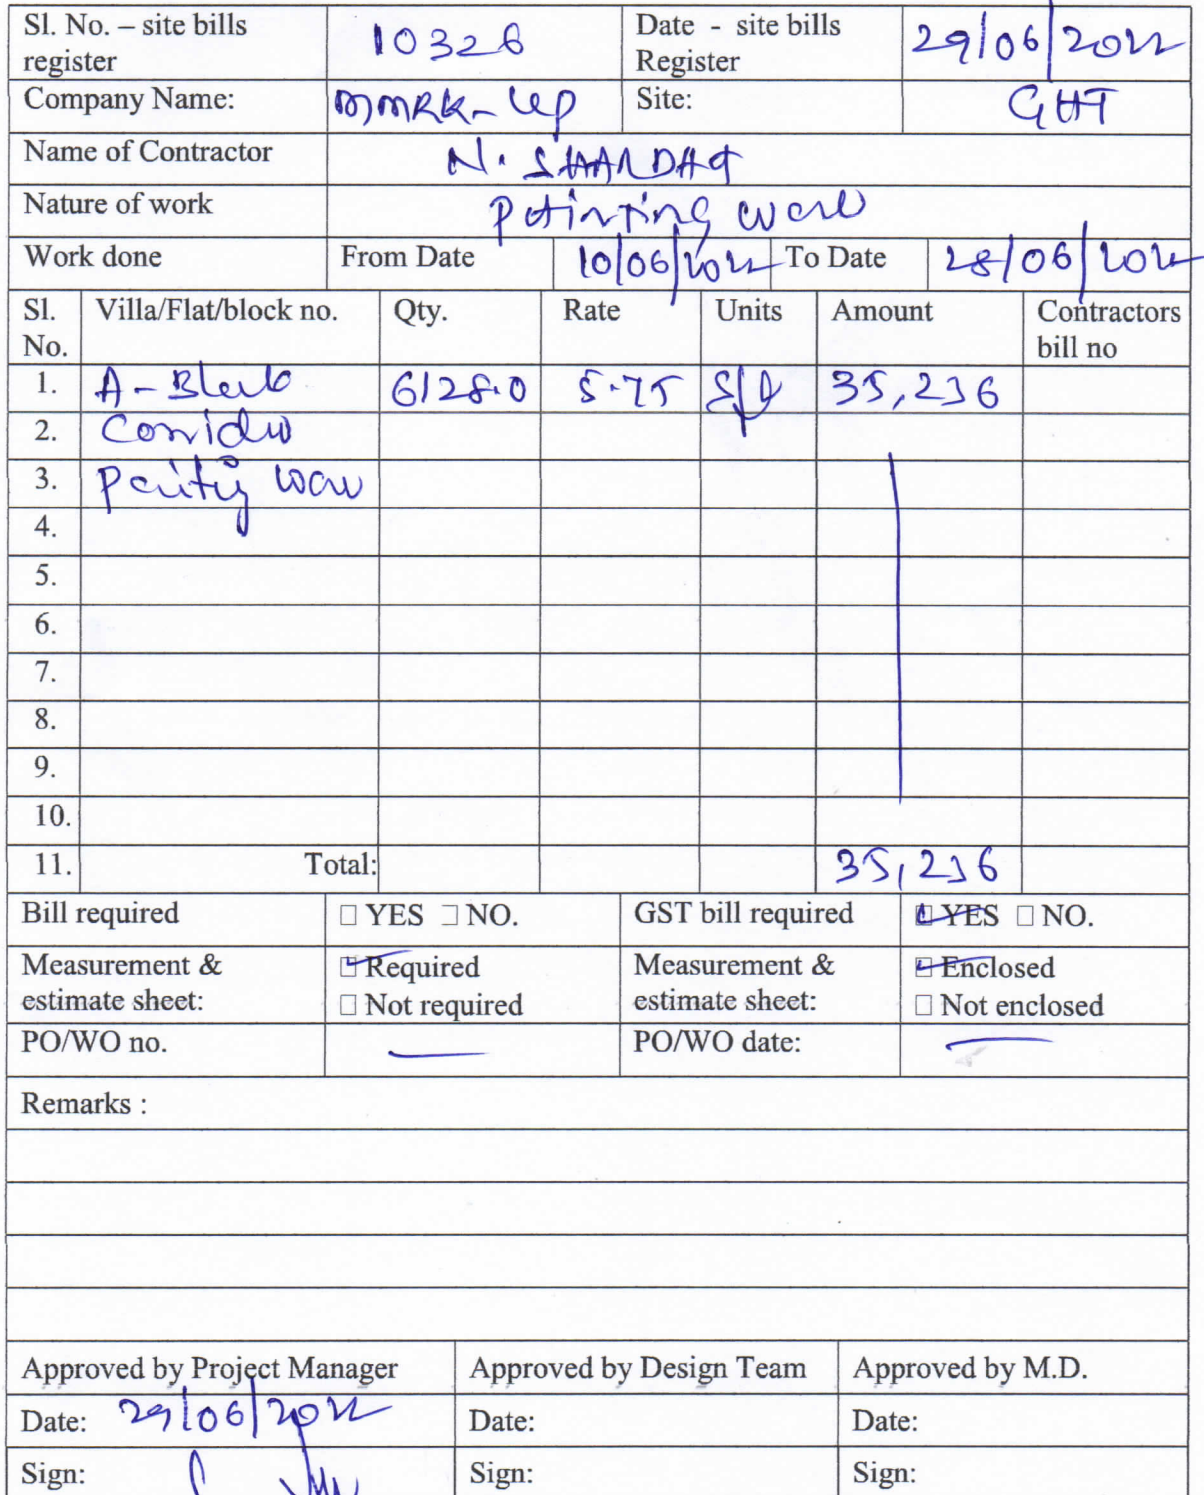 Sl. No. – site bills register 10326 Date - site bills Register 29/06/2022
Company Name: MMRK-LLP Site: GHT
Name of Contractor N. SHARDHA
Nature of work Painting work
Work done From Date 10/06/2022 To Date 28/06/2022
Sl. No. Villa/Flat/block no. Qty. Rate Units Amount Contractors bill no
1. A-Block 6128.0 5.75 Sft 35,236
2. Corridor
3. Painting work
4.
5.
6.
7.
8.
9.
10.
11. Total: 35,236
Bill required □ YES □ NO. GST bill required ☑ YES □ NO.
Measurement & estimate sheet: ☑ Required □ Not required Measurement & estimate sheet: ☑ Enclosed □ Not enclosed
PO/WO no. — PO/WO date: —
Remarks :
Approved by Project Manager Approved by Design Team Approved by M.D.
Date: 29/06/2022 Date: Date:
Sign: Sign: Sign: